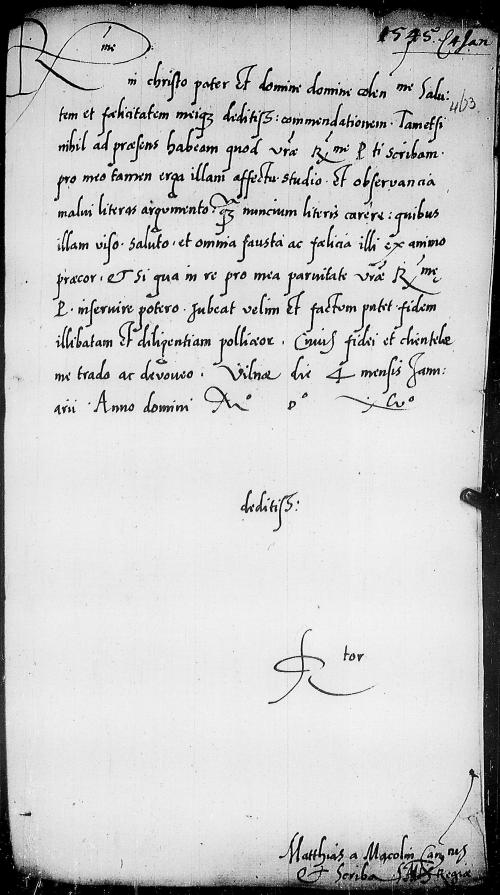 1545. 4 Jan
463
R me
in christo pater Et domine domine colen me Salu:
tem et fœlicitatem meiq3 deditiss: commendationem. Tametsi
nihil ad præsens habeam quod Vrǣ Rme P ti scribam.
pro meo tamen erga illam affectu studio. Et observancia
malui literas argumento. quam nuncium literis carere: quibus
illam viso. saluto. et omnia fausta ac fœlicia illi ex animo
præcor. Et Si qua in re pro mea paruitate Vrǣ Rme
P. inseruire potero. Jubeat velim Et factum putet. fidem
illibatam Et diligentiam polliceor. Cuius fidei et clientelæ
me trado ac devoveo. Vilnæ die 4 mensis Janu:
arii Anno domini Mo Do XLVo
deditiss:
tor
Matthias a
Et Scriba S M Regiæ